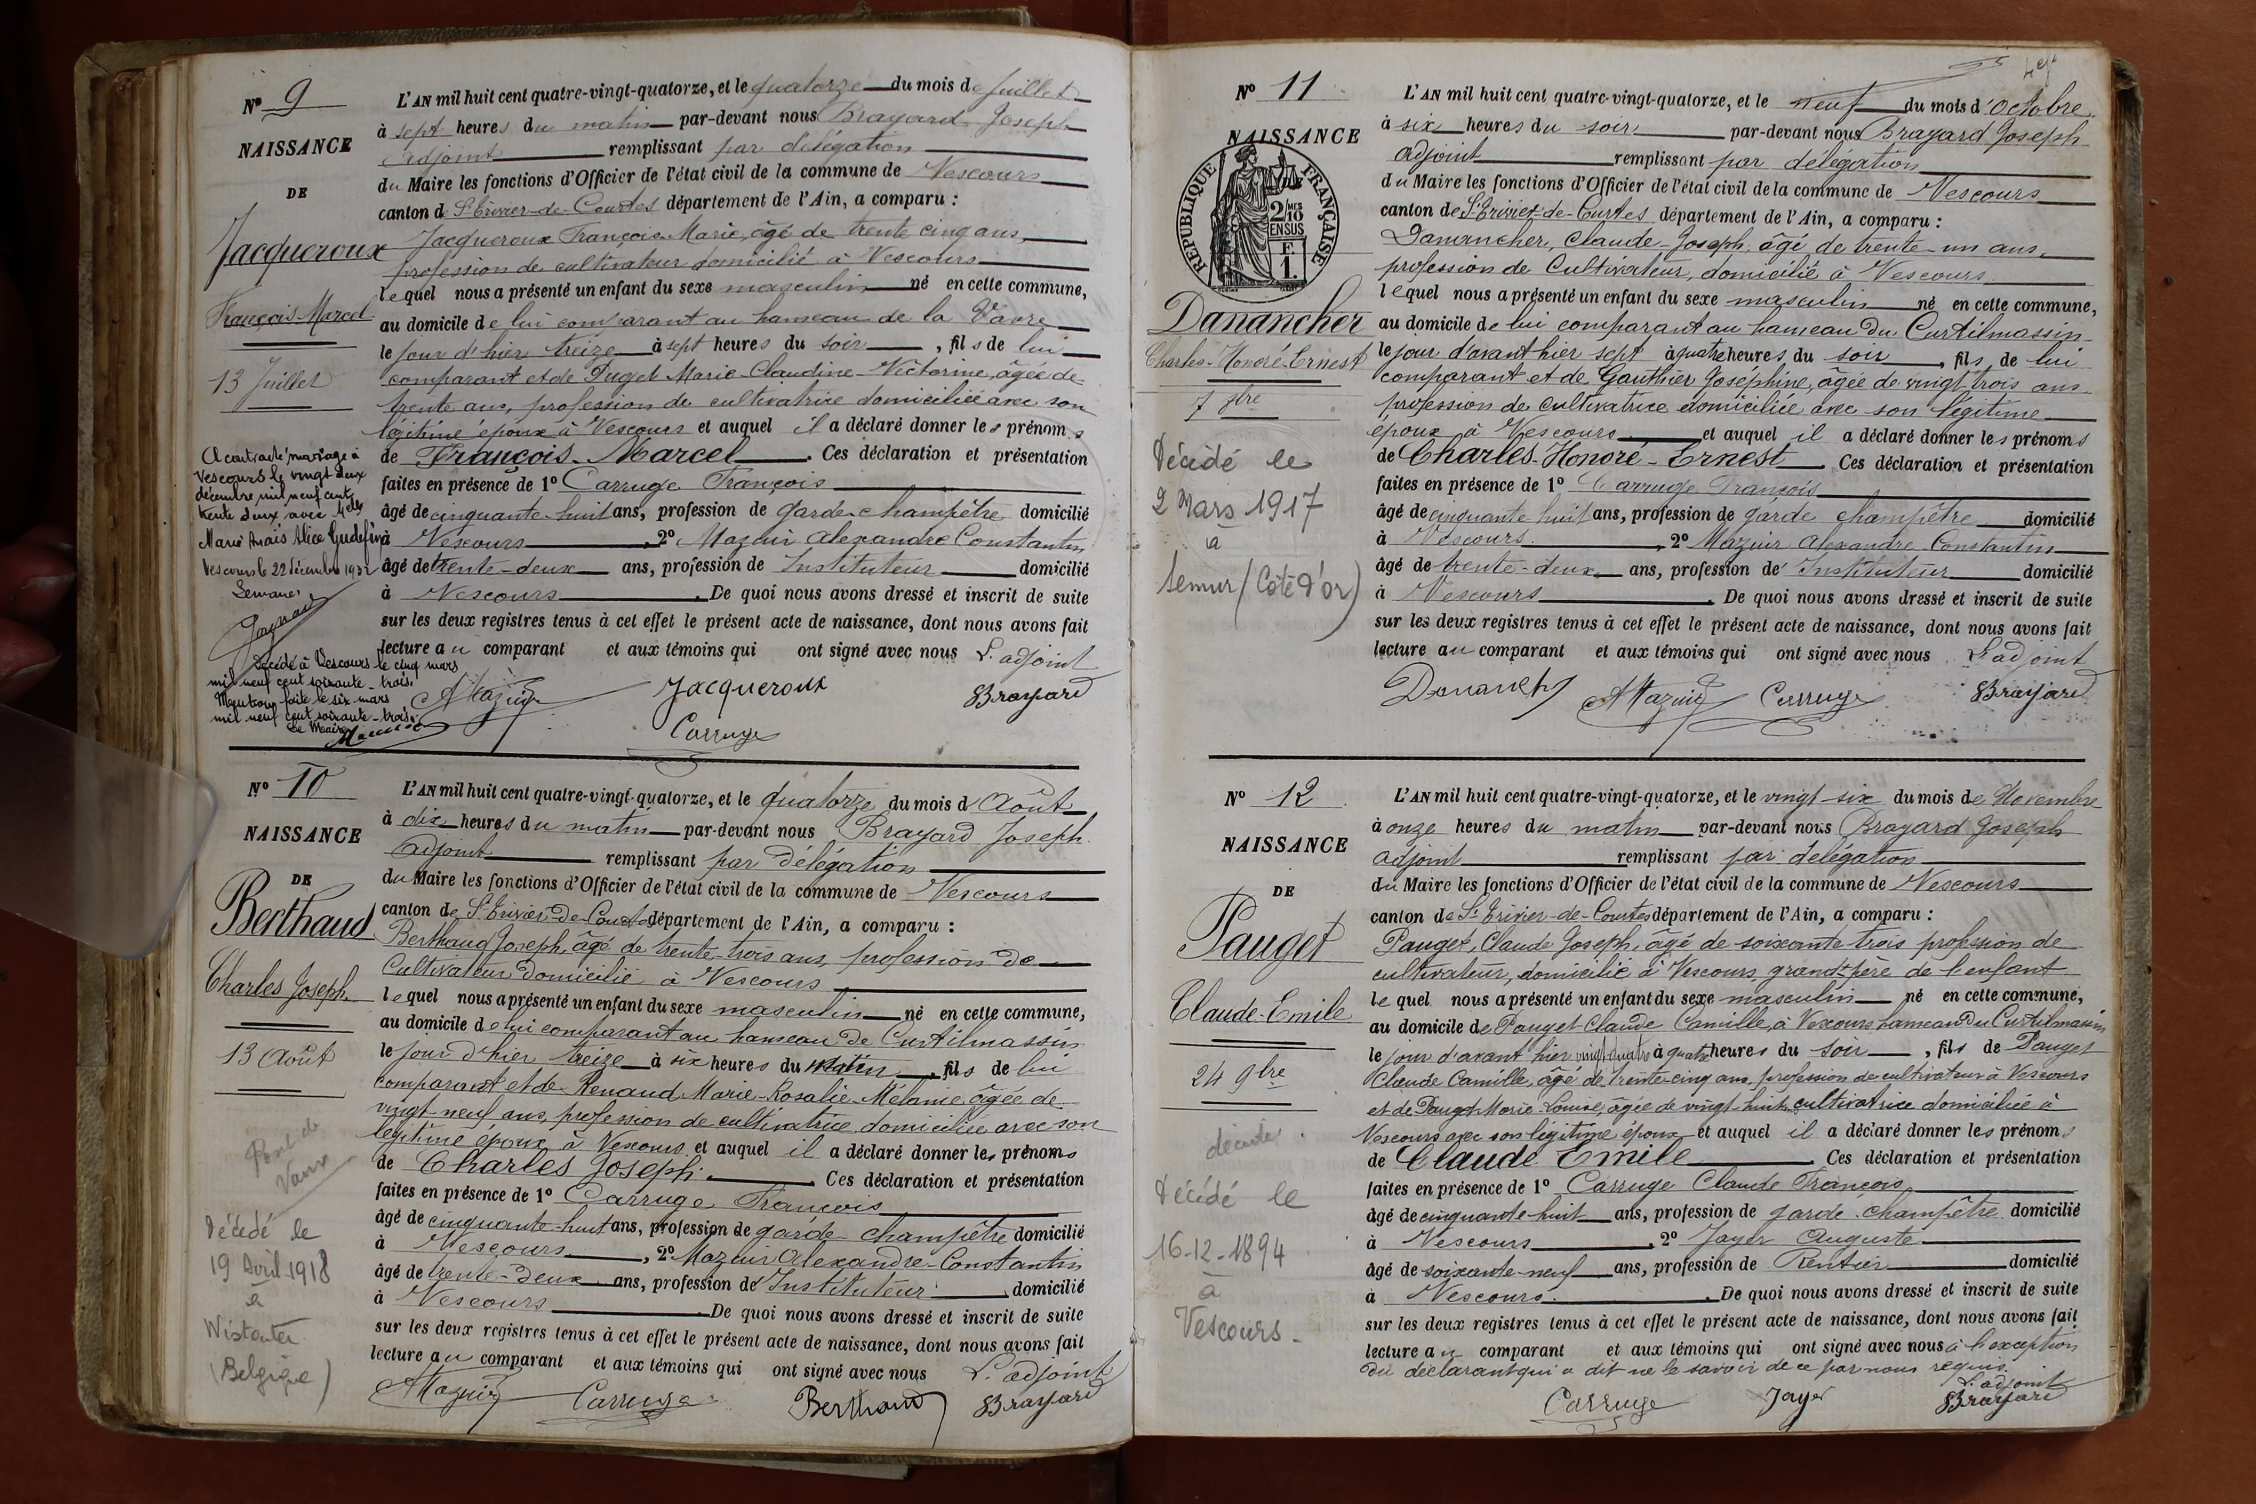 Nº 9
NAISSANCE
DE
Jacqueroux
François-Marcel
13 Juillet
A contracté mariage à
Vescours le vingt deux
décembre mil neuf cent
trente deux avec Melle
Marie Anaïs Alice Gudefin
Vescours le 22 décembre 1932
Décédé à Vescours le cinq mars
mil neuf cent soixante-trois.
Mention faite le six mars
mil neuf cent soixante-trois.
Le Maire
L'AN mil huit cent quatre-vingt-quatorze, et le quatorze du mois de Juillet
à sept heures du matin par-devant nous Brayard Joseph
adjoint remplissant par délégation
du Maire les fonctions d'Officier de l'état civil de la commune de Vescours
canton de St Trivier-de-Courtes département de l'Ain, a comparu :
Jacqueroux François Marie, âgé de trente cinq ans,
profession de cultivateur domicilié à Vescours
lequel nous a présenté un enfant du sexe masculin né en cette commune,
au domicile de lui comparant au hameau de la Vavre
le jour d'hier treize à sept heures du soir , fils de lui
comparant et de Puget Marie-Claudine-Victorine, âgée de
trente ans, profession de cultivatrice domiciliée avec son
légitime époux à Vescours et auquel il a déclaré donner les prénoms
de François-Marcel . Ces déclaration et présentation
faites en présence de 1º Carruge François
âgé de cinquante-huit ans, profession de garde-champêtre domicilié
à Vescours , 2º Mazuir Alexandre Constantin
âgé de trente-deux ans, profession de Instituteur domicilié
à Vescours . De quoi nous avons dressé et inscrit de suite
sur les deux registres tenus à cet effet le présent acte de naissance, dont nous avons fait
lecture au comparant et aux témoins qui ont signé avec nous L'adjoint
AMazuir Jacqueroux Brayard
Carruge
Nº 10
NAISSANCE
DE
Berthaud
Charles Joseph
13 Août
Pont de
Vaux
Décédé le
19 Avril 1918
à
Wistauter
(Belgique)
L'AN mil huit cent quatre-vingt-quatorze, et le quatorze du mois d'Août
à dix heures du matin par-devant nous Brayard Joseph
adjoint remplissant par délégation
du Maire les fonctions d'Officier de l'état civil de la commune de Vescours
canton de St Trivier-de-Courtes département de l'Ain, a comparu :
Berthaud Joseph, âgé de trente-trois ans, profession de
cultivateur domicilié à Vescours
lequel nous a présenté un enfant du sexe masculin né en cette commune,
au domicile de lui comparant au hameau de Curtilmassin
le jour d'hier treize à six heures du matin , fils de lui
comparant et de Renaud Marie-Rosalie-Mélanie âgée de
vingt-neuf ans, profession de cultivatrice domiciliée avec son
légitime époux à Vescours et auquel il a déclaré donner les prénoms
de Charles Joseph . Ces déclaration et présentation
faites en présence de 1º Carruge François
âgé de cinquante-huit ans, profession de garde-champêtre domicilié
à Vescours , 2º Mazuir Alexandre-Constantin
âgé de trente-deux ans, profession de Instituteur domicilié
à Vescours . De quoi nous avons dressé et inscrit de suite
sur les deux registres tenus à cet effet le présent acte de naissance, dont nous avons fait
lecture au comparant et aux témoins qui ont signé avec nous L'adjoint
AMazuir Carruge Berthaud Brayard
Nº 11
NAISSANCE
REPUBLIQUE FRANÇAISE
2/10 MES
EN SUS
F.
1.
Danancher
Charles-Honoré-Ernest
7 8bre
Décédé le
2 Mars 1917
à
Semur (Côte d'or)
L'AN mil huit cent quatre-vingt-quatorze, et le neuf du mois d'Octobre
à six heures du soir par-devant nous Brayard Joseph
adjoint remplissant par délégation
du Maire les fonctions d'Officier de l'état civil de la commune de Vescours
canton de St Trivier-de-Courtes département de l'Ain, a comparu :
Danancher, Claude-Joseph, âgé de trente-un ans,
profession de Cultivateur, domicilié à Vescours
lequel nous a présenté un enfant du sexe masculin né en cette commune,
au domicile de lui comparant au hameau du Curtilmassin
le jour d'avant hier sept à quatre heures du soir , fils de lui
comparant et de Gauthier Joséphine, âgée de vingt trois ans
profession de cultivatrice domiciliée avec son légitime
époux à Vescours et auquel il a déclaré donner les prénoms
de Charles-Honoré-Ernest . Ces déclaration et présentation
faites en présence de 1º Carruge François
âgé de cinquante huit ans, profession de garde champêtre domicilié
à Vescours , 2º Mazuir Alexandre Constantin
âgé de trente-deux ans, profession de Instituteur domicilié
à Vescours . De quoi nous avons dressé et inscrit de suite
sur les deux registres tenus à cet effet le présent acte de naissance, dont nous avons fait
lecture au comparant et aux témoins qui ont signé avec nous L'adjoint
AMazuir Carruge Brayard
Nº 12
NAISSANCE
DE
Pauget
Claude-Emile
24 9bre
Décédé le
16-12-1894
à
Vescours
L'AN mil huit cent quatre-vingt-quatorze, et le vingt-six du mois de Novembre
à onze heures du matin par-devant nous Brayard Joseph
adjoint remplissant par délégation
du Maire les fonctions d'Officier de l'état civil de la commune de Vescours
canton de St Trivier-de-Courtes département de l'Ain, a comparu :
Pauget, Claude Joseph, âgé de soixante trois profession de
cultivateur, domicilié à Vescours, grand-père de l'enfant
lequel nous a présenté un enfant du sexe masculin né en cette commune,
au domicile de Pauget Claude Camille, à Vescours hameau du Curtilmassin
le jour d'avant hier vingt-quatre à quatre heures du soir , fils de Pauget
Claude Camille, âgé de trente-cinq ans, profession de cultivateur à Vescours
et de Pauget Marie-Louise, âgée de vingt-huit, cultivatrice domiciliée à
Vescours avec son légitime époux et auquel il a déclaré donner les prénoms
de Claude Emile . Ces déclaration et présentation
faites en présence de 1º Carruge Claude François
âgé de cinquante-huit ans, profession de garde-champêtre domicilié
à Vescours , 2º Jayer Auguste
âgé de soixante-neuf ans, profession de Rentier domicilié
à Vescours . De quoi nous avons dressé et inscrit de suite
sur les deux registres tenus à cet effet le présent acte de naissance, dont nous avons fait
lecture au comparant et aux témoins qui ont signé avec nous à l'exception
du déclarant qui a dit ne le savoir de ce par nous requis.
L'adjoint
Carruge Jayer Brayard